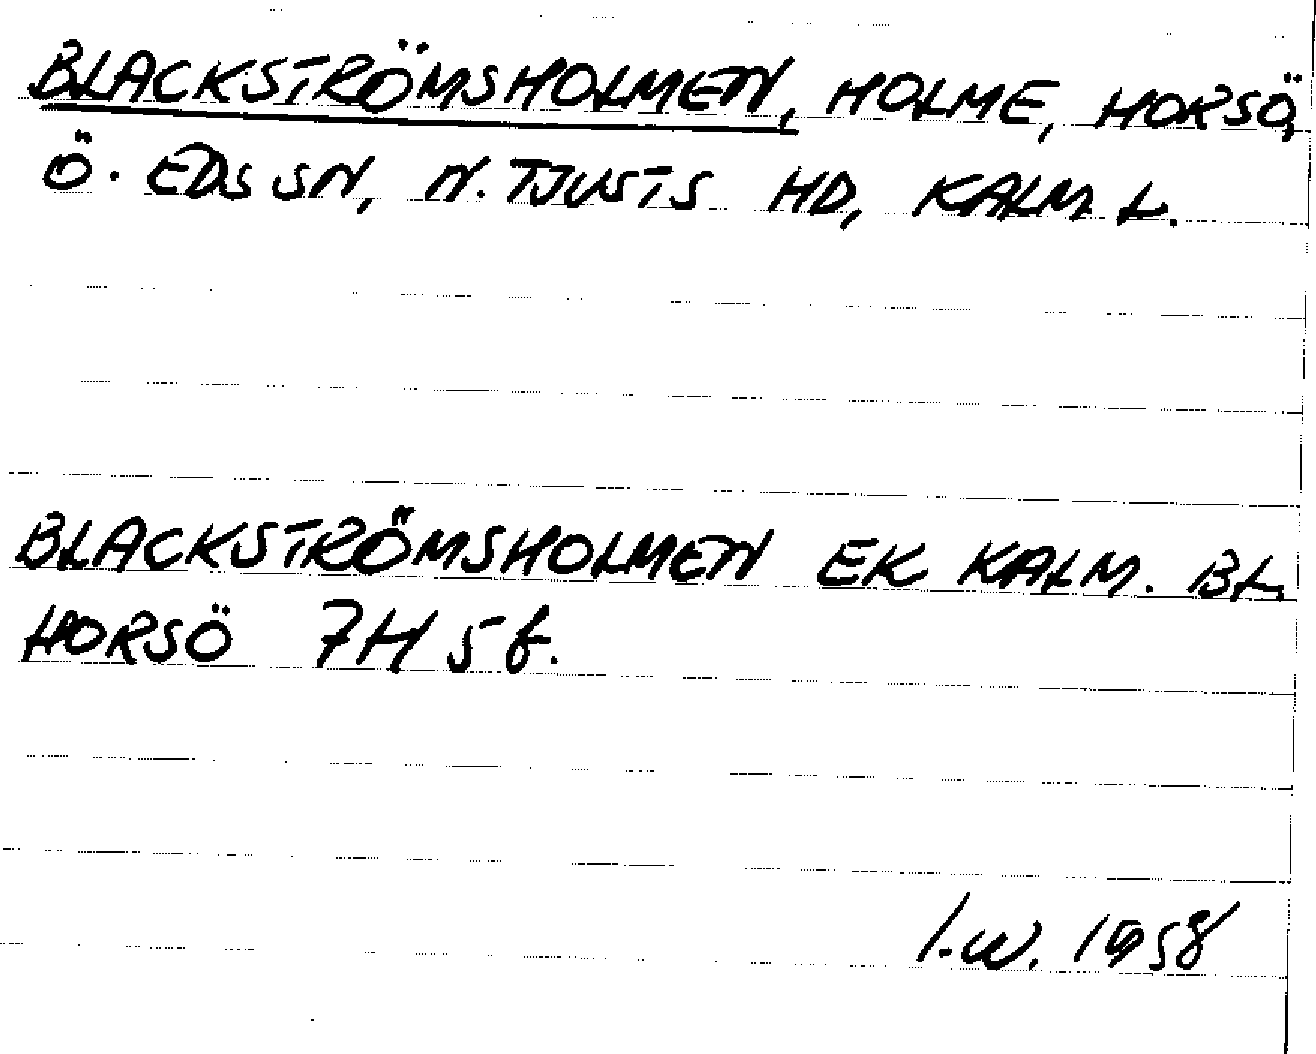 BLACKSTRÖMSHOLMEN, HOLME, HORSÖ,
Ö. EDS SN, N. TJUSTS HD, KALM L.
BLACKSTRÖMSHOLMEN EK KALM. BL.
HORSÖ 7H 5f.
I.W. 1958